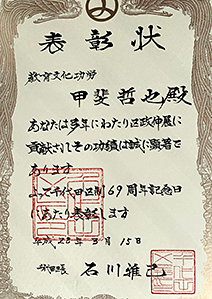 表彰状
教育文化功労
甲斐哲也殿
あなたは多年にわたり区政伸展に
貢献されその功績は誠に顕著で
あります
よって千代田区制69周年記念日
にあたり表彰します
平成28年3月15日
千代田区長 石川雅己